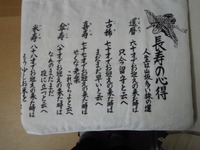 長寿の心得
人生は山坂多い旅の道
還暦
六十才でお迎えの来た時は
只今留守と云へ
古稀
七十才でお迎えの来た時は
まだまだ早いと云へ
喜寿
七十七才でお迎えの来た時は
せくな老楽これからよと云へ
傘寿
八十才でお迎えの来た時は
なんのまだまだ
役に立つと云へ
米寿
八十八才でお迎えの来た時は
もう少しお米を